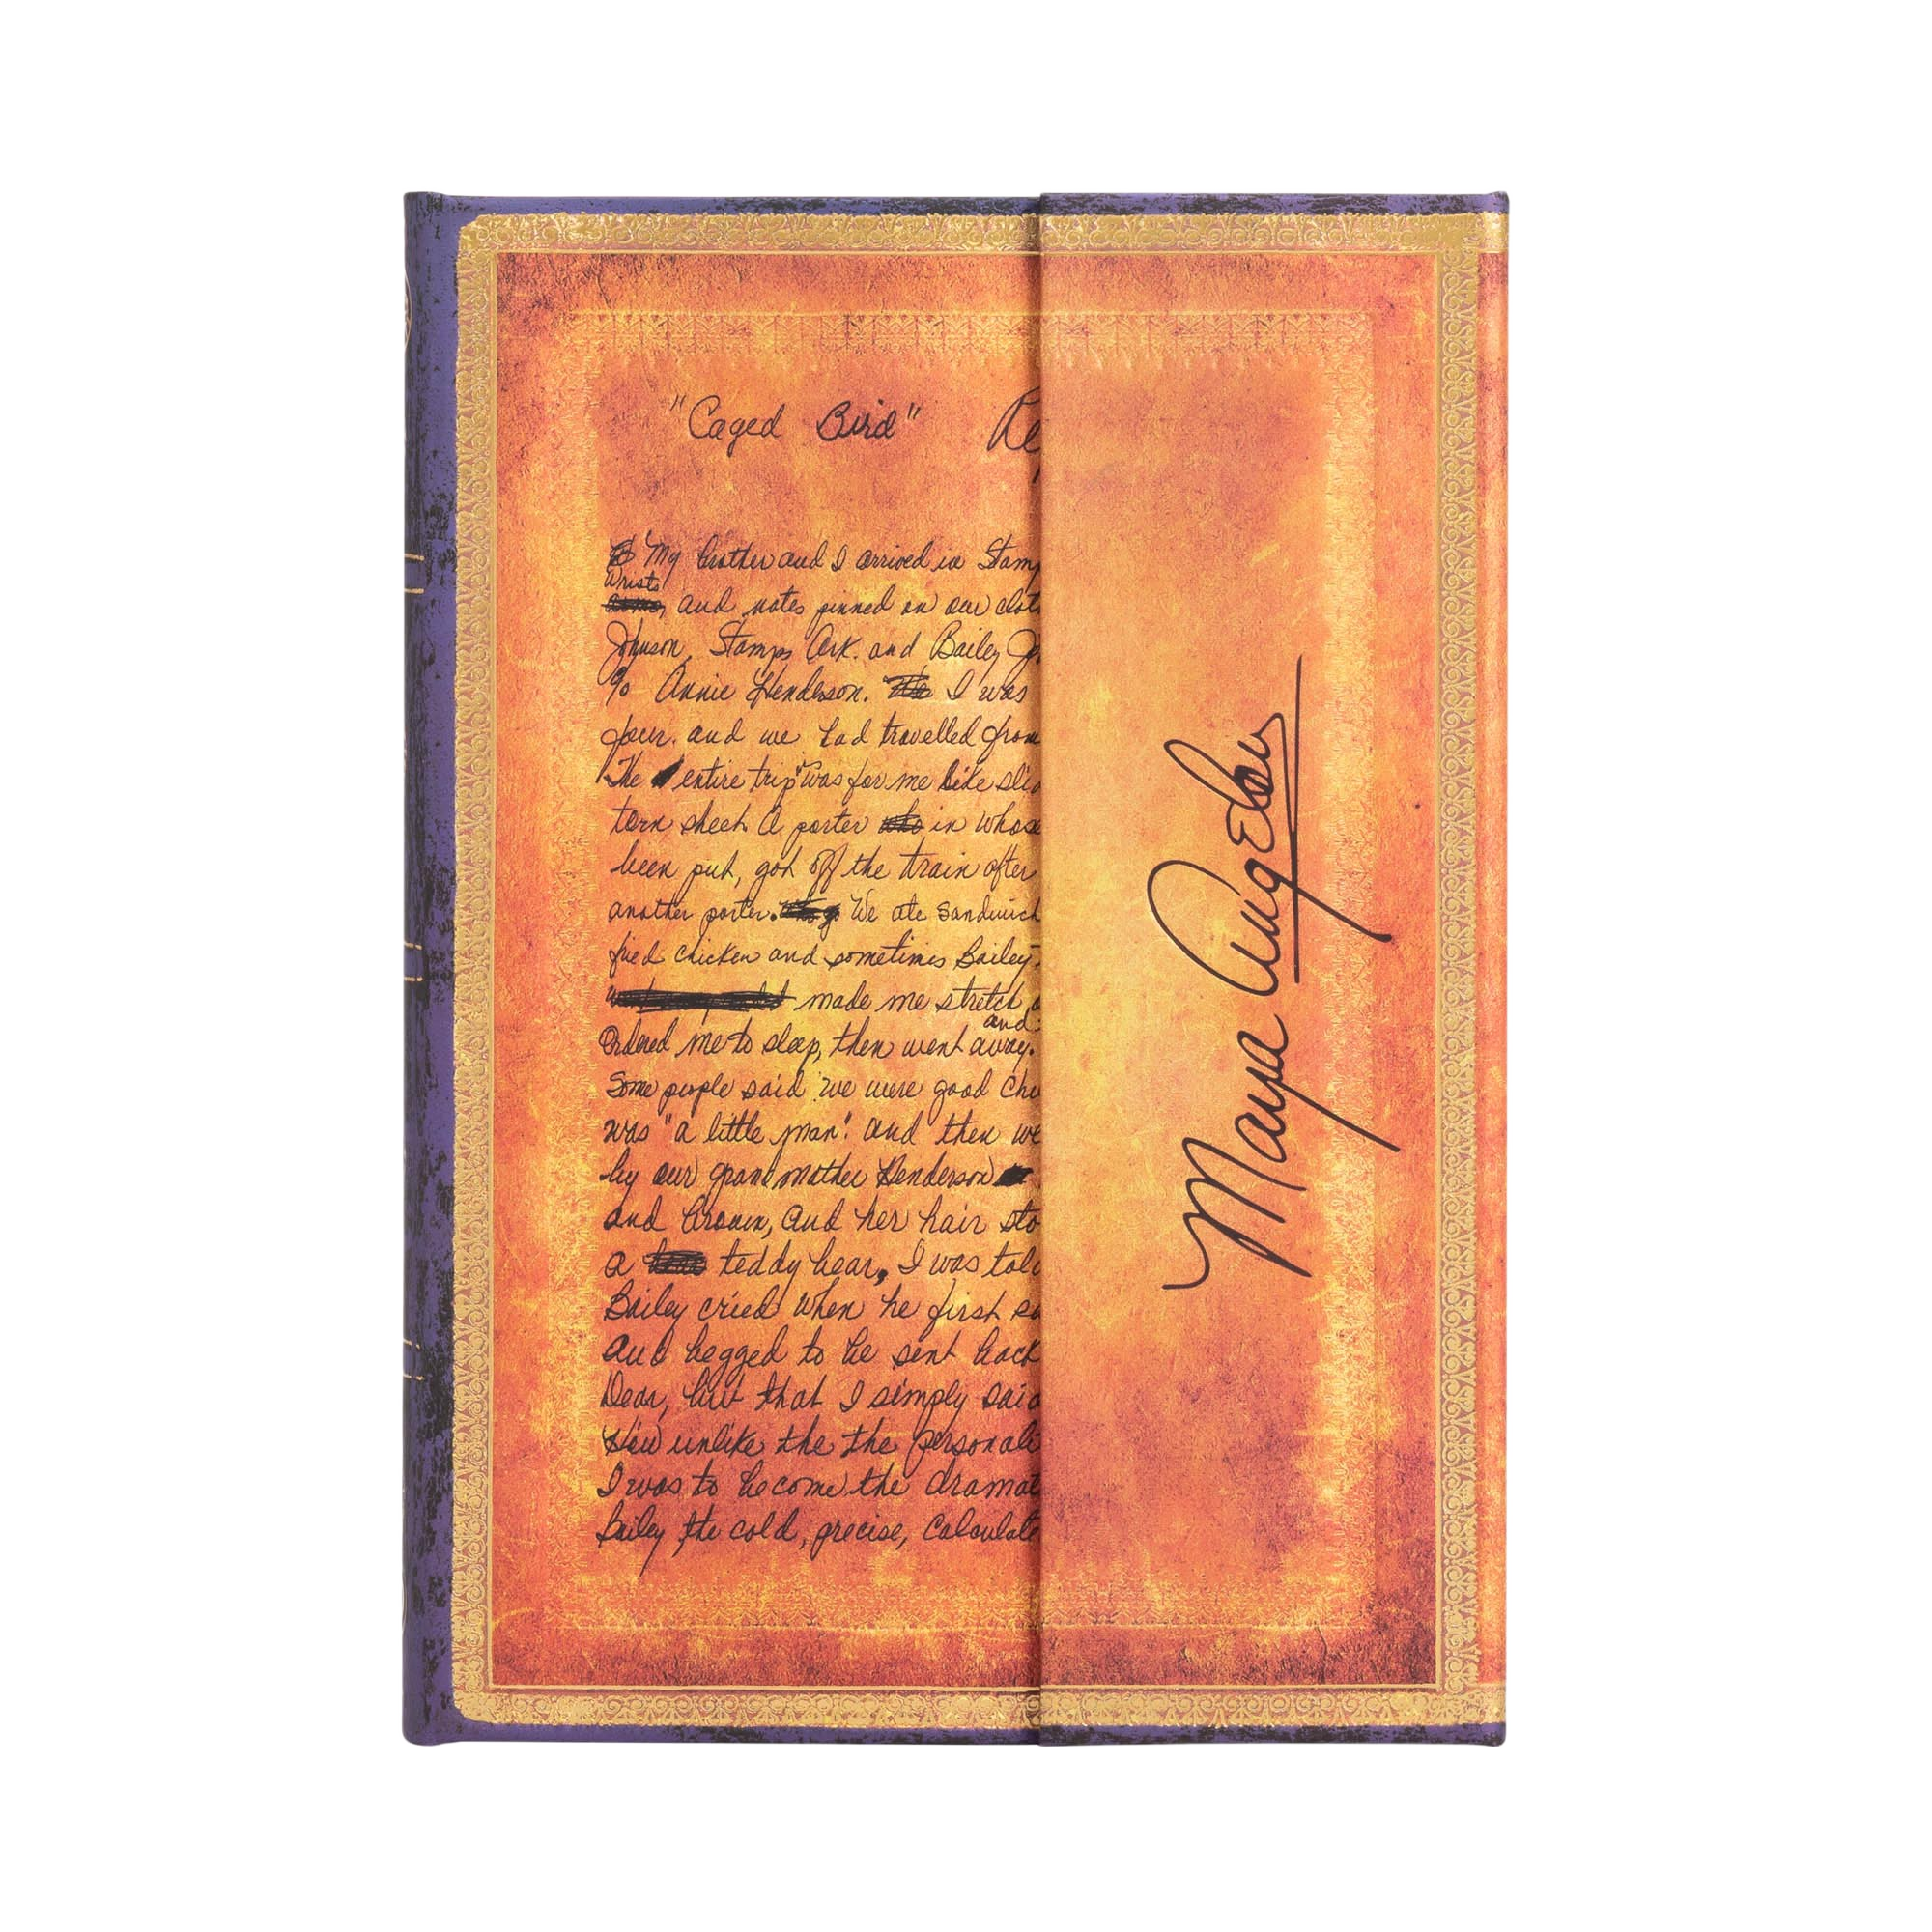 "Caged Bird" Re
My brother and I arrived in Stamp
Wrists
and notes pinned on our clot
Johnson, Stamps Ark. and Bailey Jo
c/o Annie Henderson. I was
four. and we had travelled from
The entire trip was for me like slid
torn sheet. A porter who in whose
been put, got off the train after
another porter. We ate sandwich
fried chicken and sometimes Bailey
made me stretch o
and
Ordered me to sleep, then went away.
Some people said we were good chi
was "a little man". and then we
by our grandmother Henderson
and brown, and her hair sto
a teddy bear, I was told
Bailey cried when he first sa
And begged to be sent back
Dear, but that I simply said
How unlike the the personali
I was to become the dramat
Bailey the cold, precise, calculate
Maya Angelou